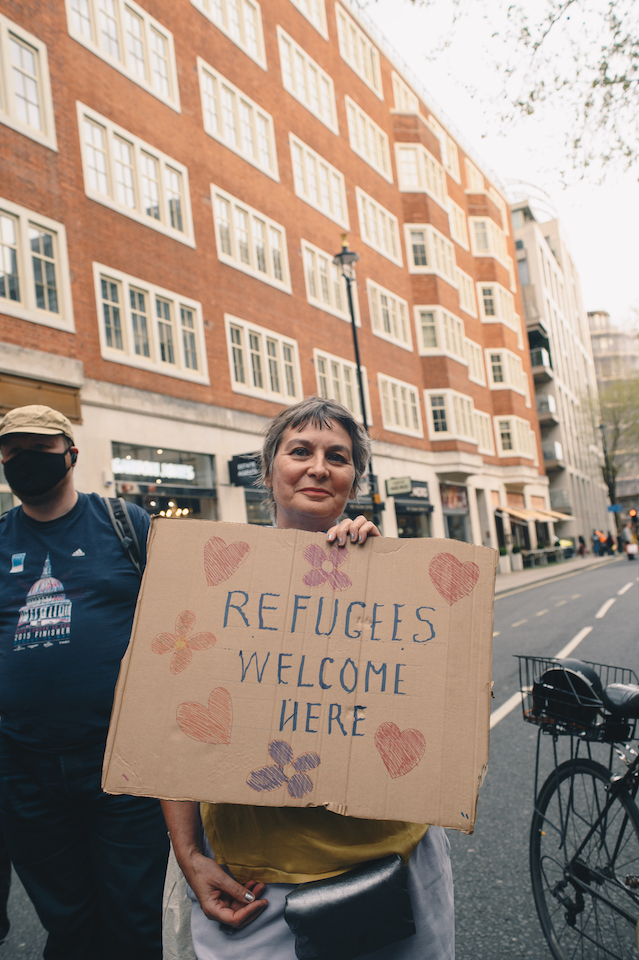 REFUGEES
WELCOME
HERE
FINISHER